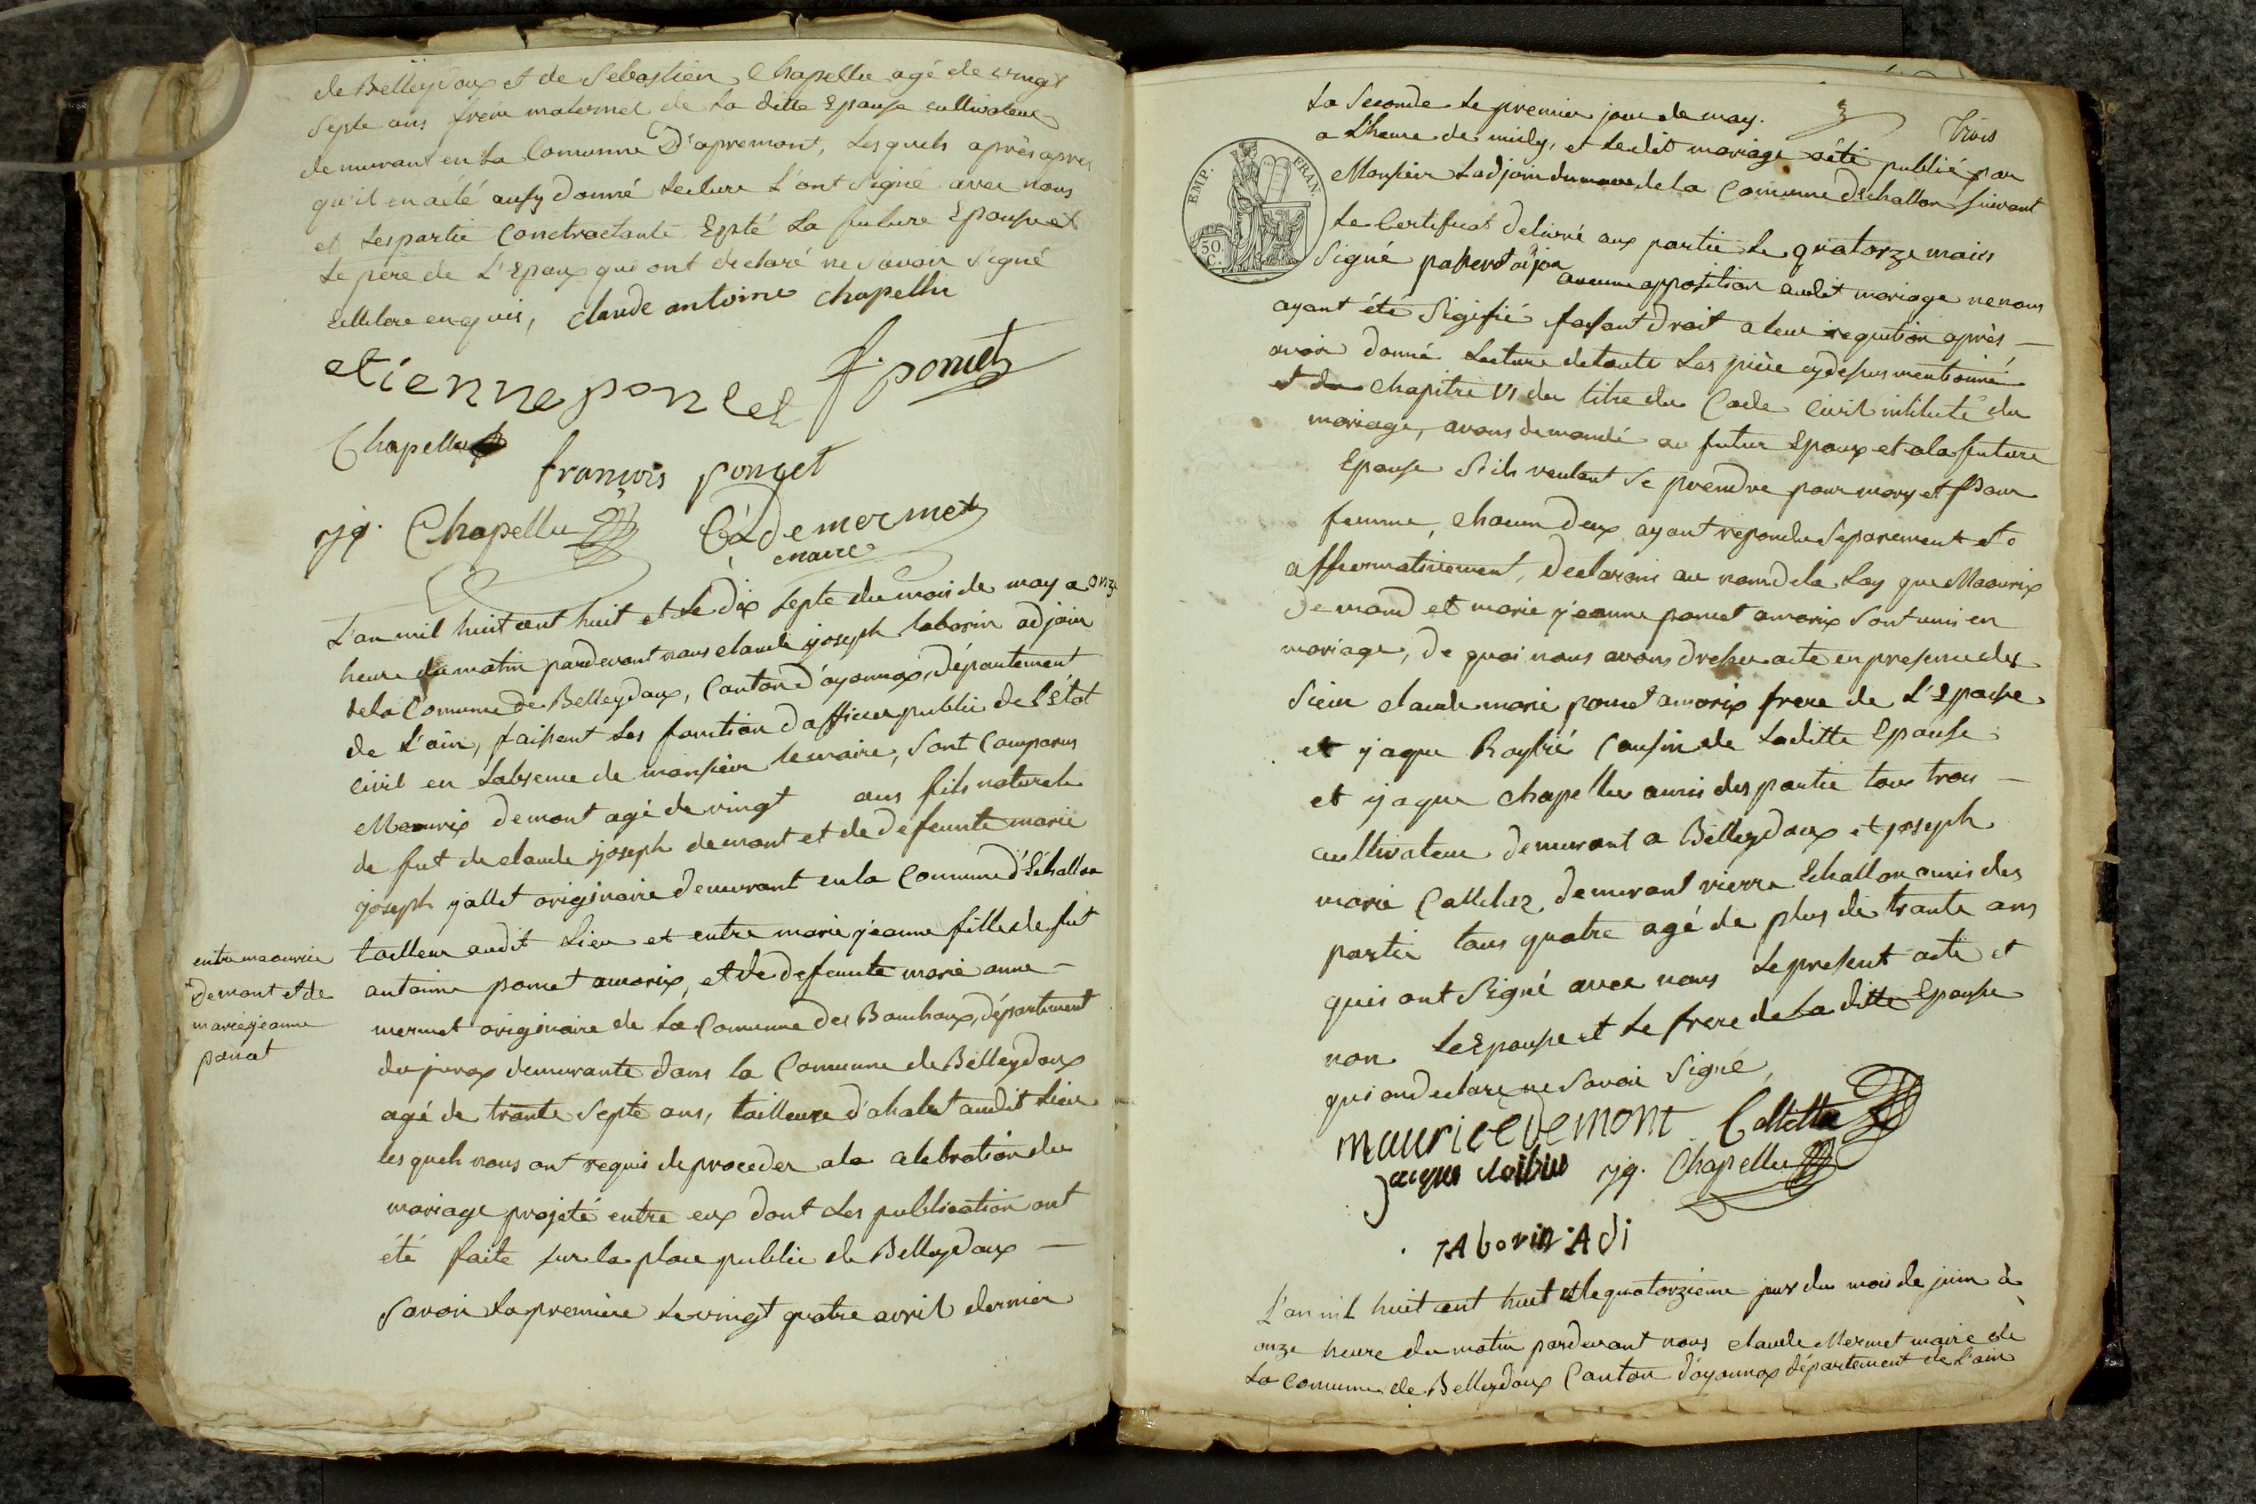 de Belleydoux et de Sebastien Chapellu agé de vingt
Septe ans frère maternel de la ditte Epouse cultivateur
demeurant en la Comunne D'apremont, Lesquels après
qu'il en a été ausy donné lecture L'ont Signé avec nous
et Les partie Conctractante Epté La future Epouse et
Le père de L'Epoux qui ont declaré ne Savoir Signé
enquis, claude antoine chapellu
etienne poncet f. poncet
Chapellu
françois ponçet
jq. Chapellu C. Demermet
maire
L'an mil huit cent huit et Le dix Septe du mois de may a onze
heure du matin pardevant nous claude joseph laborin adjoin
de la Comunne de Belleydoux, Canton d'oyonnax, département
de L'ain, faisant Les fonction d'officier public de L'état
civil en Labsence de monsieur le maire, Sont Comparus
Maurix demont agé de vingt ans fils naturel
de fut de claude joseph demont et de defeunte marie
joseph jallet originaire demeurant en la Comunne d'Echallon
entre maourice
Demont et de
marie jeanne
poncet
tailleur audit Lieu et entre marie jeanne fille de fut
antoine poncet amorix, et de defeunte marie anne
mermet originaire de La Comunne des Bouchoux, département
du jurax demeurante dans la Comunne de Belleydoux
agé de trante Septe ans, tailleuse d'abalet audit Lieu
les quels nous ont requis de proceder a la celebration du
mariage projeté entre eux dont Les publication ont
été faite sur la place public de Belleydoux
Savoir La première Le vingt quatre avril dernier
3 Trois
La Seconde Le premier jour de may.
a L'heure de midy, et Ledit mariage a été publié par
Monsieur Ladjoin du maire de la Comunne d'Echallon suivant
Le Certificat delivré aux partie Le quatorze mais
Signé adjoin aucune opposition audit mariage ne nous
ayant été Sigifié faisant Droit a leur requition après
avoir donné Lecture de toute Les pièce cydesus mentionné
et du Chapitre VI du titre du Code Civil intitulé du
mariage, avons demandé au futur Epoux et a la future
Epouse S'ils veulent Se prendre pour mary et Pour
femme, chacun deux ayant repondu Separement et
affermativement, Declarons au nom de la Loy que Maourix
Demond et marie jeanne poncet amorix Sont unis en
mariage, De quoi nous avons dresser acte en presence des
Sieur claude marie poncet amorix frere de L'Epouse
et jaque Roybié Cousin de Laditte Epouse
et jaque chapellu amis des partie tous trois
cultivateur demeurant a Belleydoux et joseph
marie Callet demeurant rierre Echallon amis des
partie tous quatre agé de plus de trante ans
quis ont Signé avec nous Le present acte et
non LEpouse et Le frere de La ditte Epouse
qui on declare ne Savoir Signé,
maurice Demont Collette
Jacques roibier jq. Chapellu
lAborin Adi
L'an mil huit cent huit et le quatorzieme jour du mois de juin à
onze heure du matin pardevant nous claude Mermet maire de
La comunne de Belleydoux Canton d'oyonnax département de L'ain
EMP. FRAN
50 C.